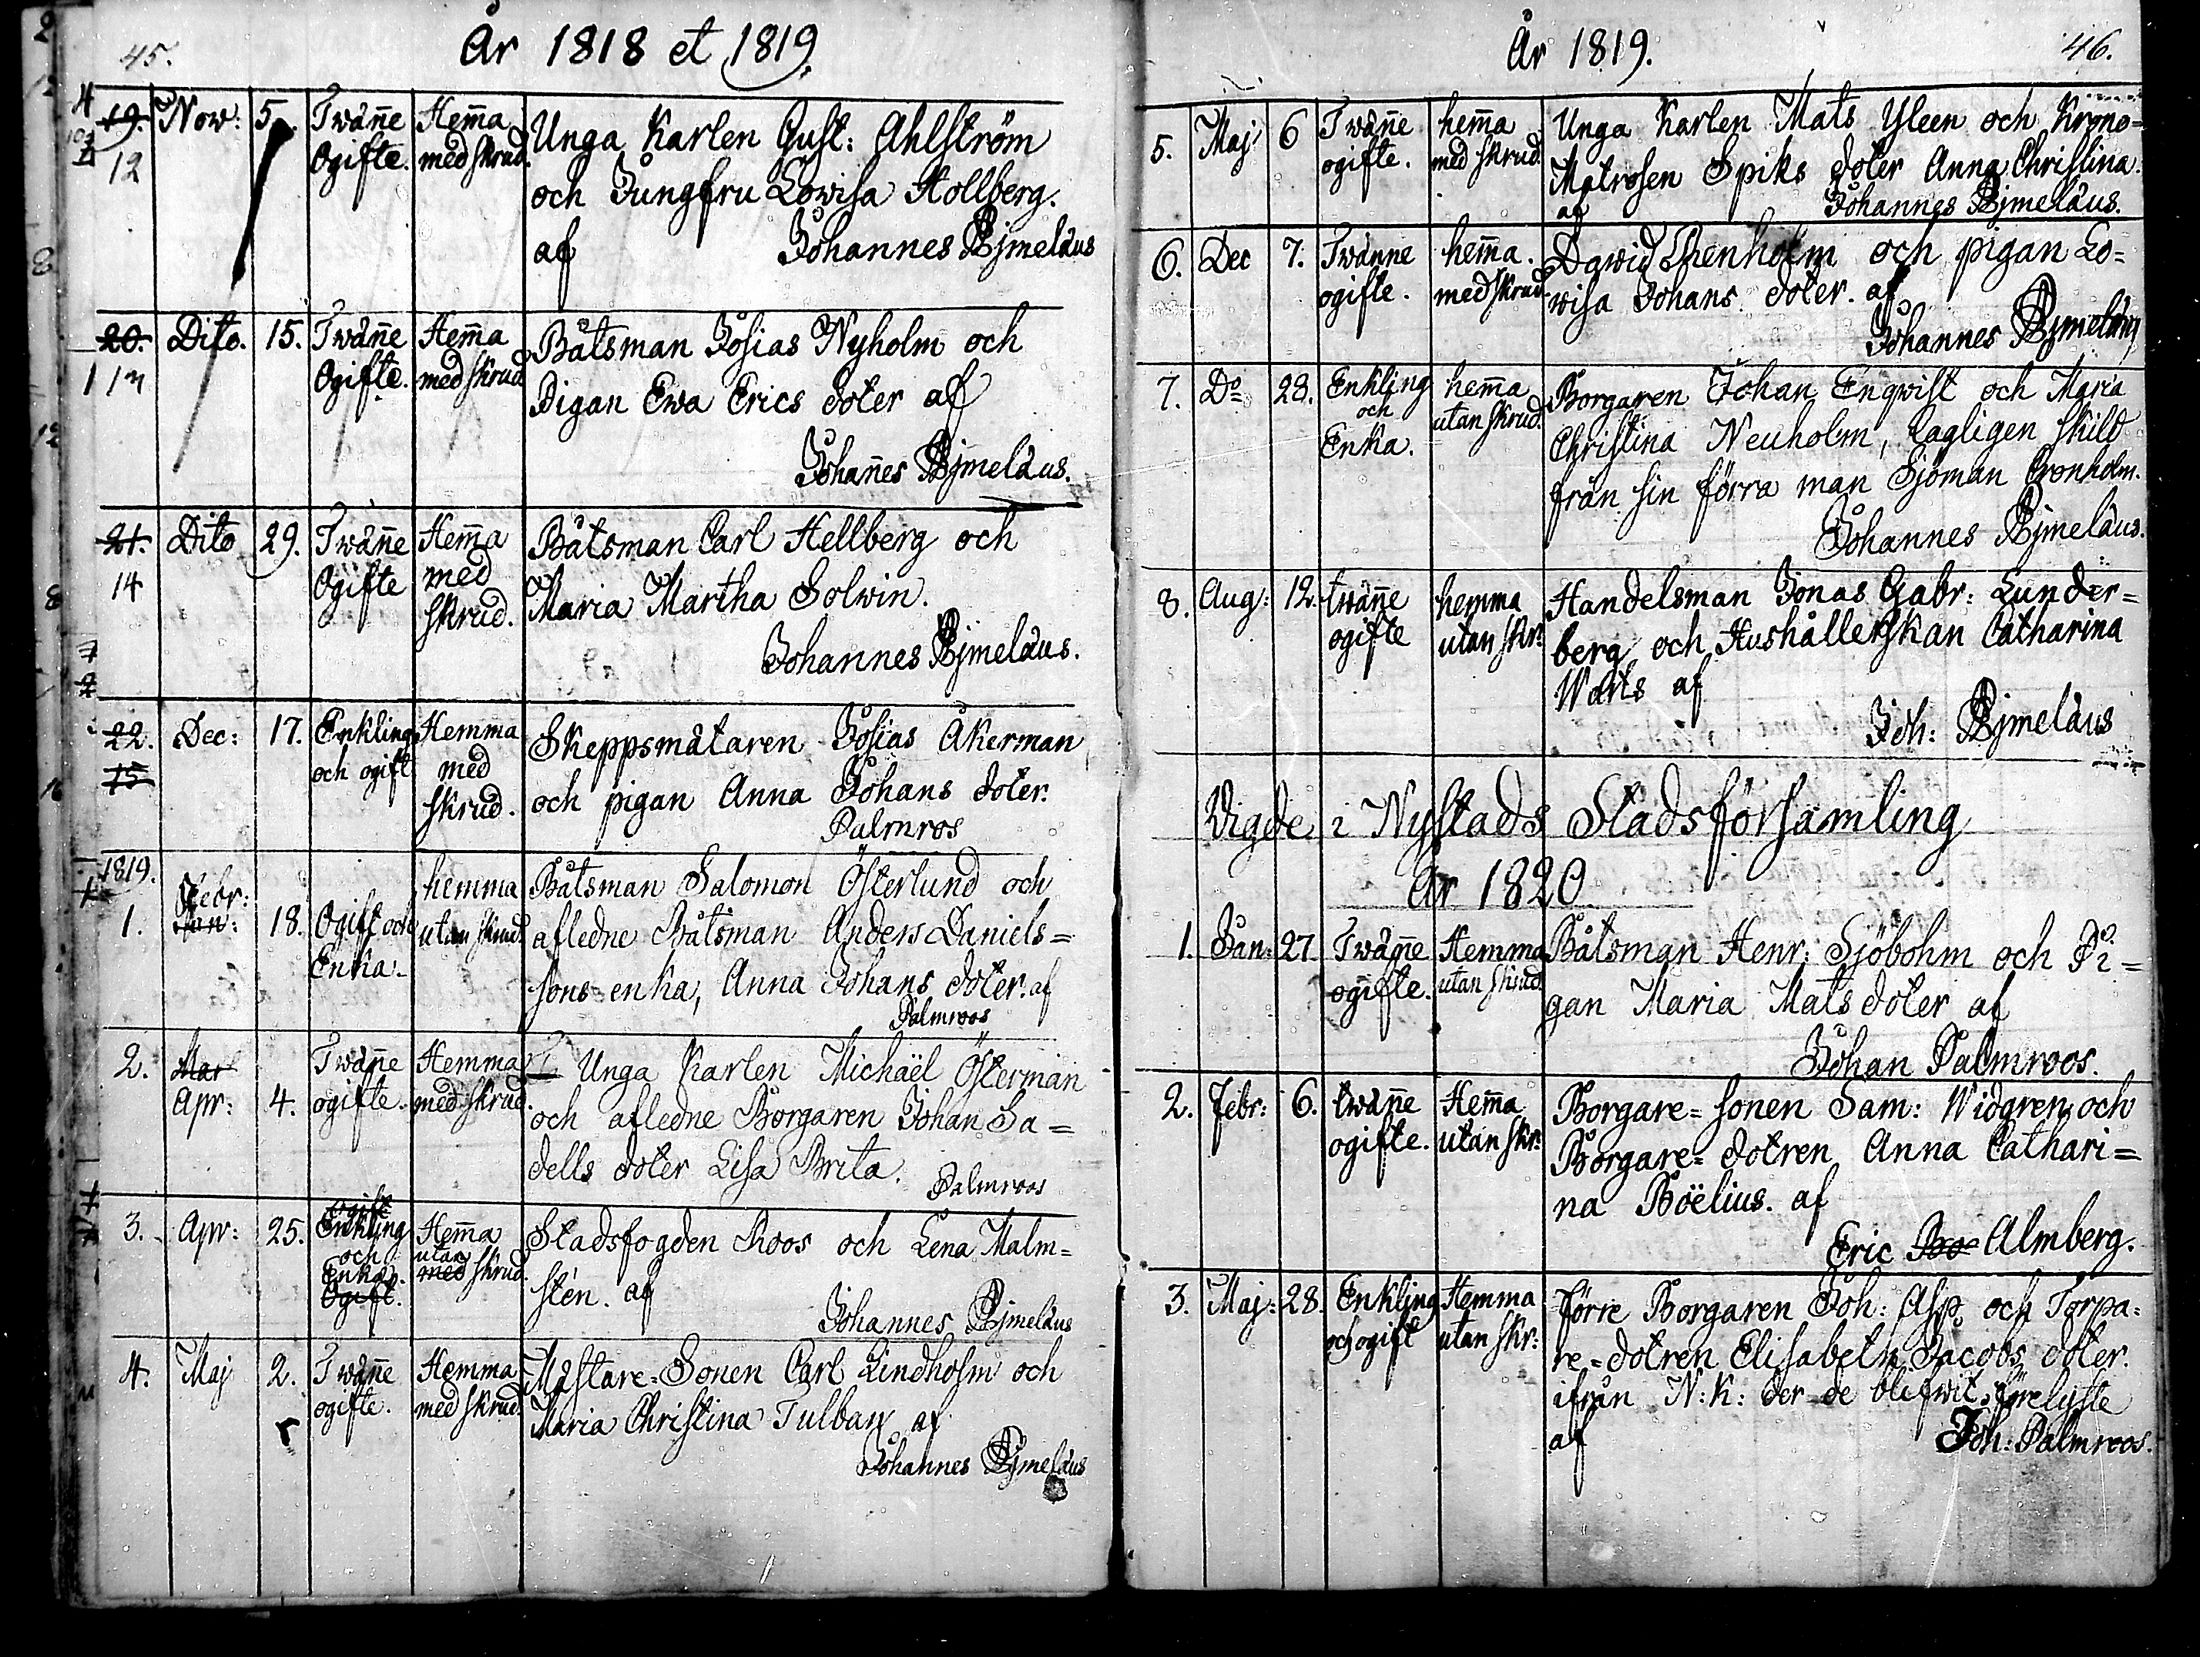 45.
År 1818 et 1819.
19. Nov: 5. Twäñe Hem̃a Unga Karlen Gust: Ahlström
12 Ogifte. med skrud. och Jungfru Lowisa Hollberg.
af Johannes Bjmelæus
20. Dito. 15. Twäñe Hem̃a Båtsman Josias Nyholm och
13 Ogifte. med skrud Pigan Ewa Erics doter af
Johañes Bjmeläus.
21. Dito 29. Twäñe Hem̃a Båtsman Carl Hellberg och
14 Ogifte med skrud. Maria Martha Solwin.
Johannes Bjmeläus.
22. Dec: 17. Enkling Hemma Skeppsmätaren Josias Åkerman
15 och ogift med skrud. och pigan Anna Johans doter.
Palmros
1819.
1. Febr: Jan: 18. Ogift och hemma Båtsman Salomon Österlund och
Enka. utan skrud. afledne Båtsman Anders Daniels=
sons enka, Anna Johans doter. af
Palmroos
2. Mar Twäñe Hemma Unga Karlen Michaël Österman
Apr: 4. ogifte. med skrud. och afledne Borgaren Johan Sa=
dells doter Lisa Brita. Palmroos
3. Apr: 25. Ogift Enkling Hem̃a Stadsfogden Roos och Lena Malm=
och Enka. Ogift. utan med skrud. stén. af
Johannes Bjmeläus
4. Maj 2. Twäñe Hemma Mästare-Sonen Carl Lindholm och
ogifte. med skrud. Maria Christina Tulban af
Johannes Bjmeläus
År 1819.
46.
5. Maj 6 Twäñe hem̃a Unga Karlen Mats Yleen och Krono=
ogifte. med skrud. Matrosen Spiks doter Anna Christina.
af Johannes Bjmeläus.
6. Dec 7. Twänne hem̃a. Dawid Thenholm och pigan Lo=
ogifte. med skrud. wisa Johans doter. af
Johannes Bjmeläus
7. Do 28. Enkling hem̃a Borgaren Johan Enqwist och Maria
och utan skrud. Christina Neuholm, lagligen skild
Enka. från sin förra man Sjöman Cronholm.
Johannes Bjmeläus.
8. Aug: 12. twäñe hemma Handelsman Jonas Gabr: Lunder=
ogifte utan skr: berg och Hushållerskan Catharina
af
Joh: Bjmeläus
Vigde i Nystads Stadsförsamling
År 1820.
1. Jan: 27. Twäñe Hemma Båtsman Henr: Sjöbohm och Pi=
ogifte. utan skrud. gan Maria Mats doter af
Johan Palmroos.
2. Febr: 6. twäñe Hem̃a Borgare=sonen Sam: Widgren och
ogifte. utan skr: Borgare=dotren Anna Cathari=
na Böëlius. af
Eric Bo Almberg.
3. Maj: 28. Enkling Hemma Förre Borgaren Joh: Asp och Torpa=
och ogift utan skr: re=dotren Elisabeth Jacobs doter.
ifrån N:K: der de blifwit förelyste
af Joh: Palmroos.